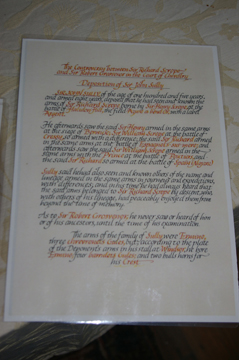 The Controversy between Sir Richard Scrope
and Sir Robert Grosvenor in the Court of Chivalry
Deposition of Sir John Sully
Sir John Sully of the age of one hundred and five years,
and armed eighty years, deposed that he had seen and known the
arms of Sir Richard Scrope borne by Sir Henry Scrope at the
battle of Halidon Hill, the field Azure, a bend Or, with a label
Argent.
He afterwards saw the said Sir Henry armed in the same arms
at the siege of Berwick; Sir William Scrope at the battle of
Cressy, so armed with a difference; the said Sir Richard armed
in the same arms at the battle of
afterwards saw the said Sir William Scrope armed in
same arms with the Prince at the battle of Poitiers; and
the said Sir Richard so armed at the battle of Spain
Sully said he had also seen and known others of the name and
lineage armed in the same arms in journeys and expeditions
with differences; and every time he had always heard that
the said arms belonged to Sir Richard Scrope by descent, who
with others of his lineage, had peaceably enjoyed them from
beyond the time of memory.
As to Sir Robert Grosvenor, he never saw or heard of him
or of his ancestors, until the time of his examination.
The arms of the family of Sully were Ermine,
three Chevronels Gules, but according to the plate
of the Deponent's arms in his stall at Windsor, he bore
Ermine four bars Gules; and two bulls horns for
his Crest.